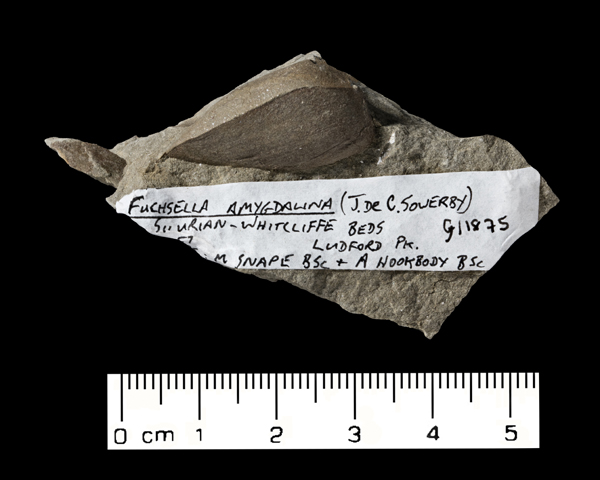 FUCHSELLA AMYGDALINA (J. DE C. SOWERBY)
SILURIAN-WHITCLIFFE BEDS G11875
LUDFORD PK.
M SNAPE BSc + A HOOKBODY BSc
0 cm 1 2 3 4 5